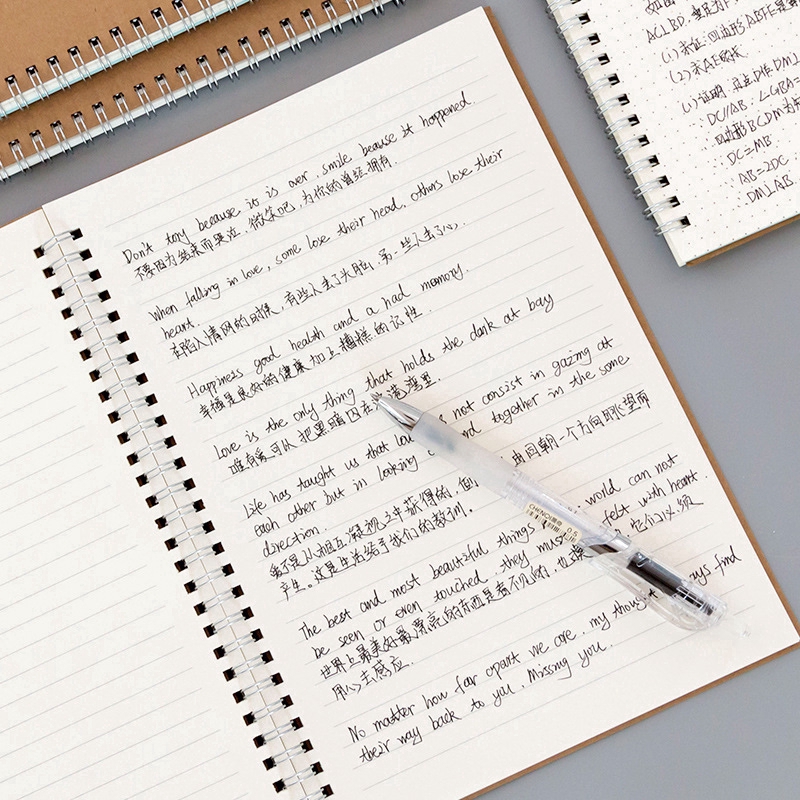 Don't cry because it is over, smile because it happened.
不要因为结束而哭泣, 微笑吧, 为你的曾经拥有.
When falling in love, some lose their head, others lose their
heart.
在陷入情网的时候, 有些人丢了头脑, 另一些人丢了心.
Happiness good health and a had memory.
幸福是良好的健康加上糟糕的记性.
Love is the only thing that holds the dark at bay
唯有爱可以把黑暗囚在 港湾里.
Life has taught us that not consist in gazing at
each other but in looking together in the same
direction.
爱不是从相互凝视之中获得的, 由同朝一个方向眺望而
产生。这是生活给予我们的教训。
The best and most beautiful things world can not
be seen or even touched, they must felt with heart.
世界上最美好最漂亮的东西是看不见的, 也摸 它们必须
用心去感应.
No matter how far apart we are, my find
their way back to you. Missing you.
CHENQI 0.5
AC⊥BD,
(1) 求证: 四边形ABFE是
(2) 求AE的长
DC//AB ∠CBA=
四边形BCDM为
DC=MB
AB=2DC
DM⊥AB